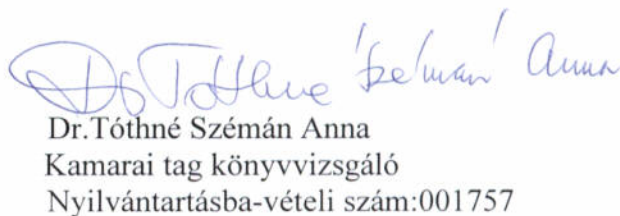 Dr Tóthné Szémán Anna
Dr.Tóthné Szémán Anna
Kamarai tag könyvvizsgáló
Nyilvántartásba-vételi szám:001757